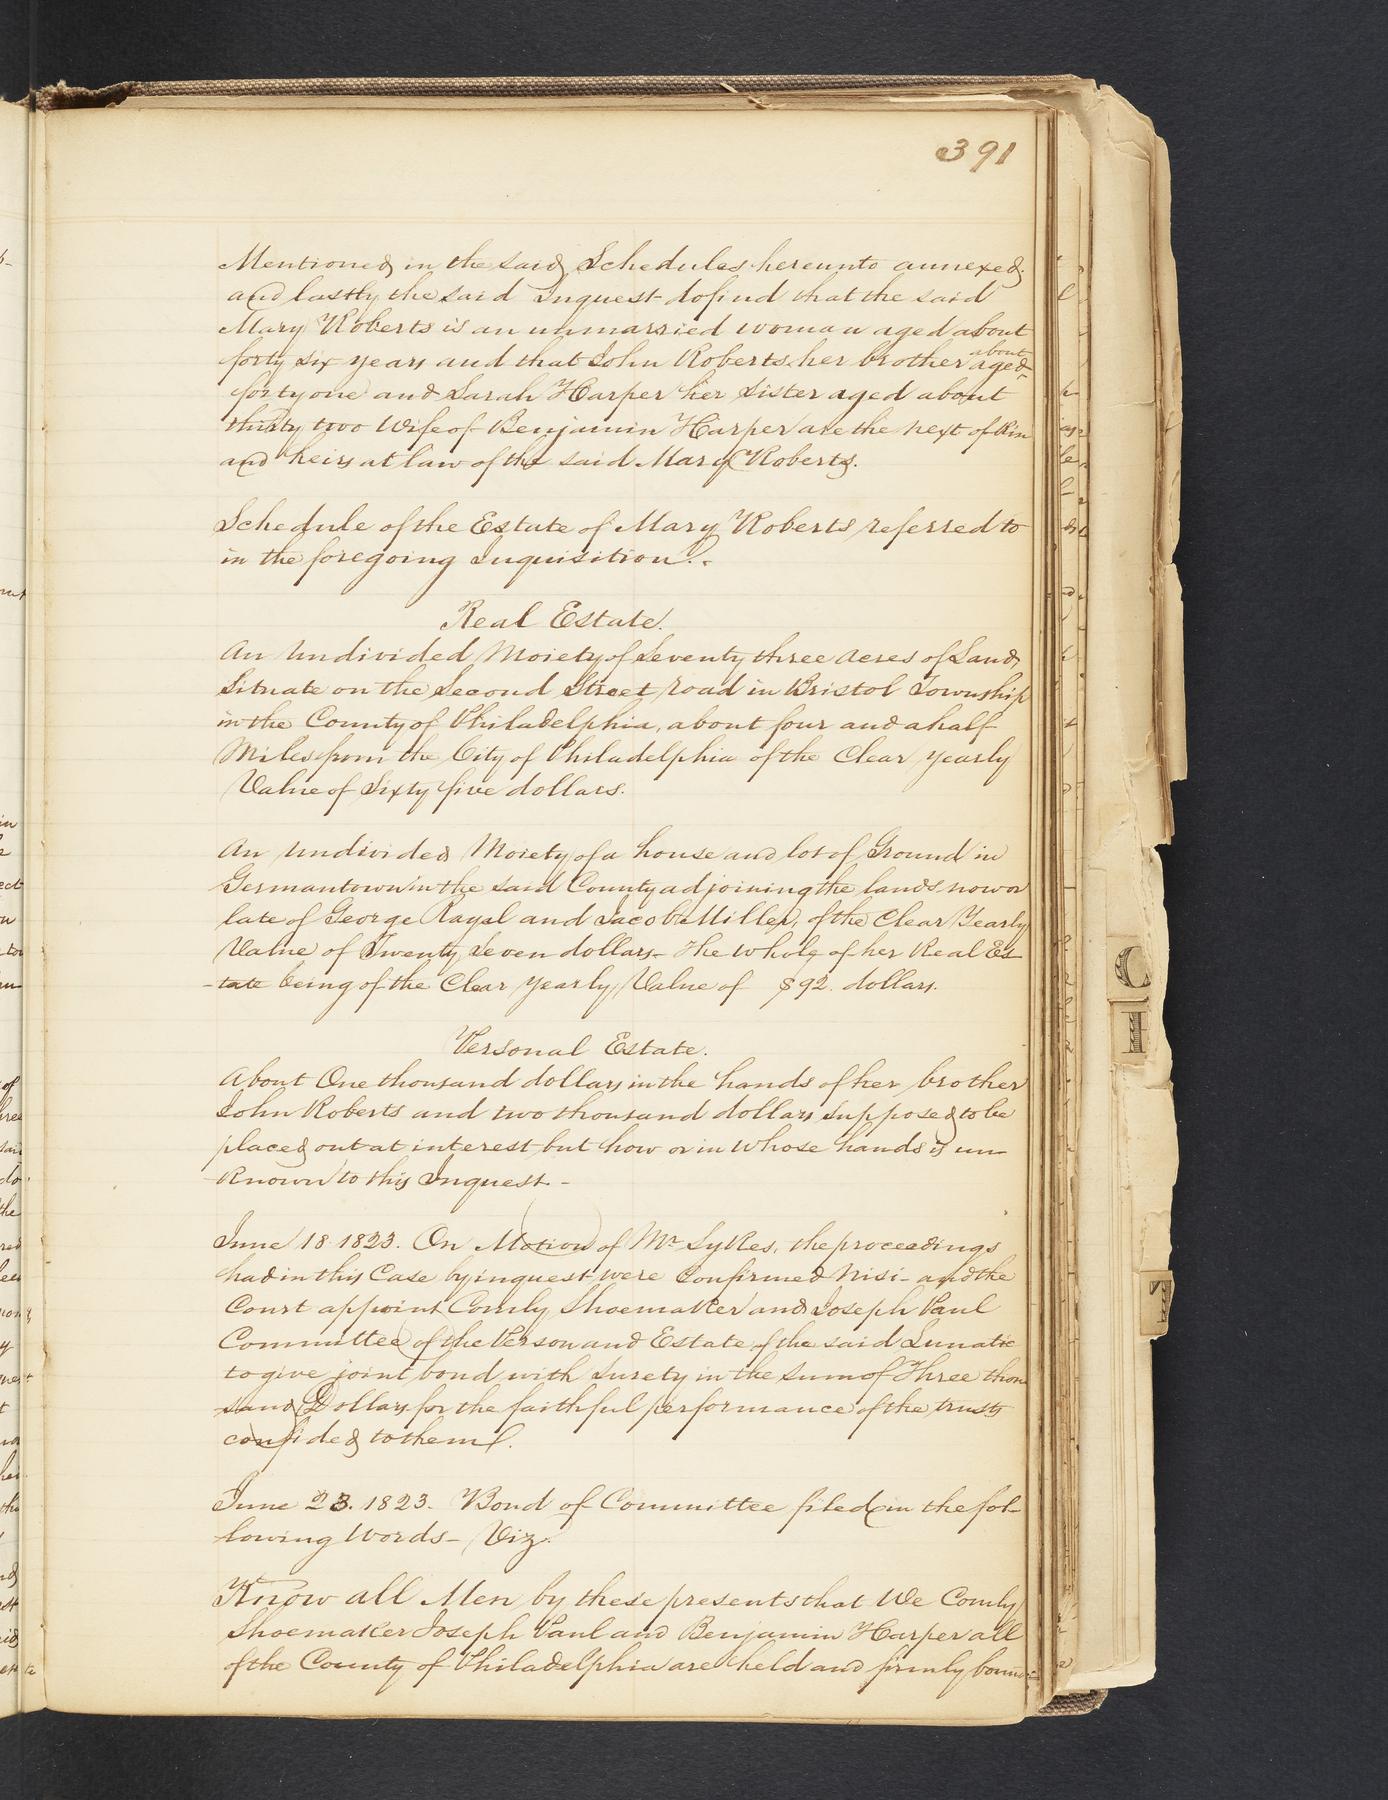 391
Mentioned in the said Schedules hereunto annexed.
and lastly the said Inquest do find that the said
Mary Roberts is an unmarried woman aged about
forty six years and that John Roberts her brother aged about
forty one and Sarah Harper her Sister aged about
thirty two Wife of Benjamin Harper are the next of Kin
and heirs at law of the said Mary Roberts.
Schedule of the Estate of Mary Roberts referred to
in the foregoing Inquisition.
Real Estate.
An Undivided Moiety of Seventy three Acres of Land,
Situate on the Second Street road in Bristol Township
in the County of Philadelphia, about four and a half
Miles from the City of Philadelphia of the Clear yearly
Value of Sixty five dollars.
An Undivided Moiety of a house and lot of Ground in
Germantown in the said County adjoining the lands now or
late of George Rayal and Jacob Miller, of the Clear Yearly
Value of Twenty Seven dollars - The Whole of her Real Es-
-tate being of the Clear yearly Value of $92. dollars.
Personal Estate.
About One thousand dollars in the hands of her brother
John Roberts and two thousand dollars supposed to be
placed out at interest but how or in Whose hands is un-
Known to this Inquest. -
June 18 1823. On Motion of Mr. Sykes, the proceedings
had in this Case by inquest were Confirmed Nisi - and the
Court appoint Comly Shoemaker and Joseph Paul
Committee of the Person and Estate of the said Lunatic
to give joint bond with Surety in the Sum of Three thou
sand Dollars for the faithful performance of the trusts
confided to them.
June 23. 1823. Bond of Committee filed in the fol-
lowing Words - Viz.
Know all Men by these presents that We Comly
Shoemaker Joseph Paul and Benjamin Harper all
of the County of Philadelphia are held and firmly bound
C
I
T